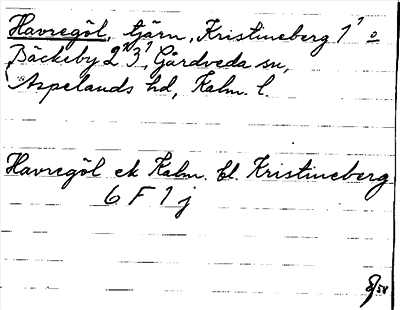 Havregöl, tjärn, Kristineberg 1¹ o
Bäckeby 2¹ 3¹, Gårdveda sn,
Aspelands hd, Kalm. l.
Havregöl ek Kalm. bl. Kristineberg
6 F 1 j